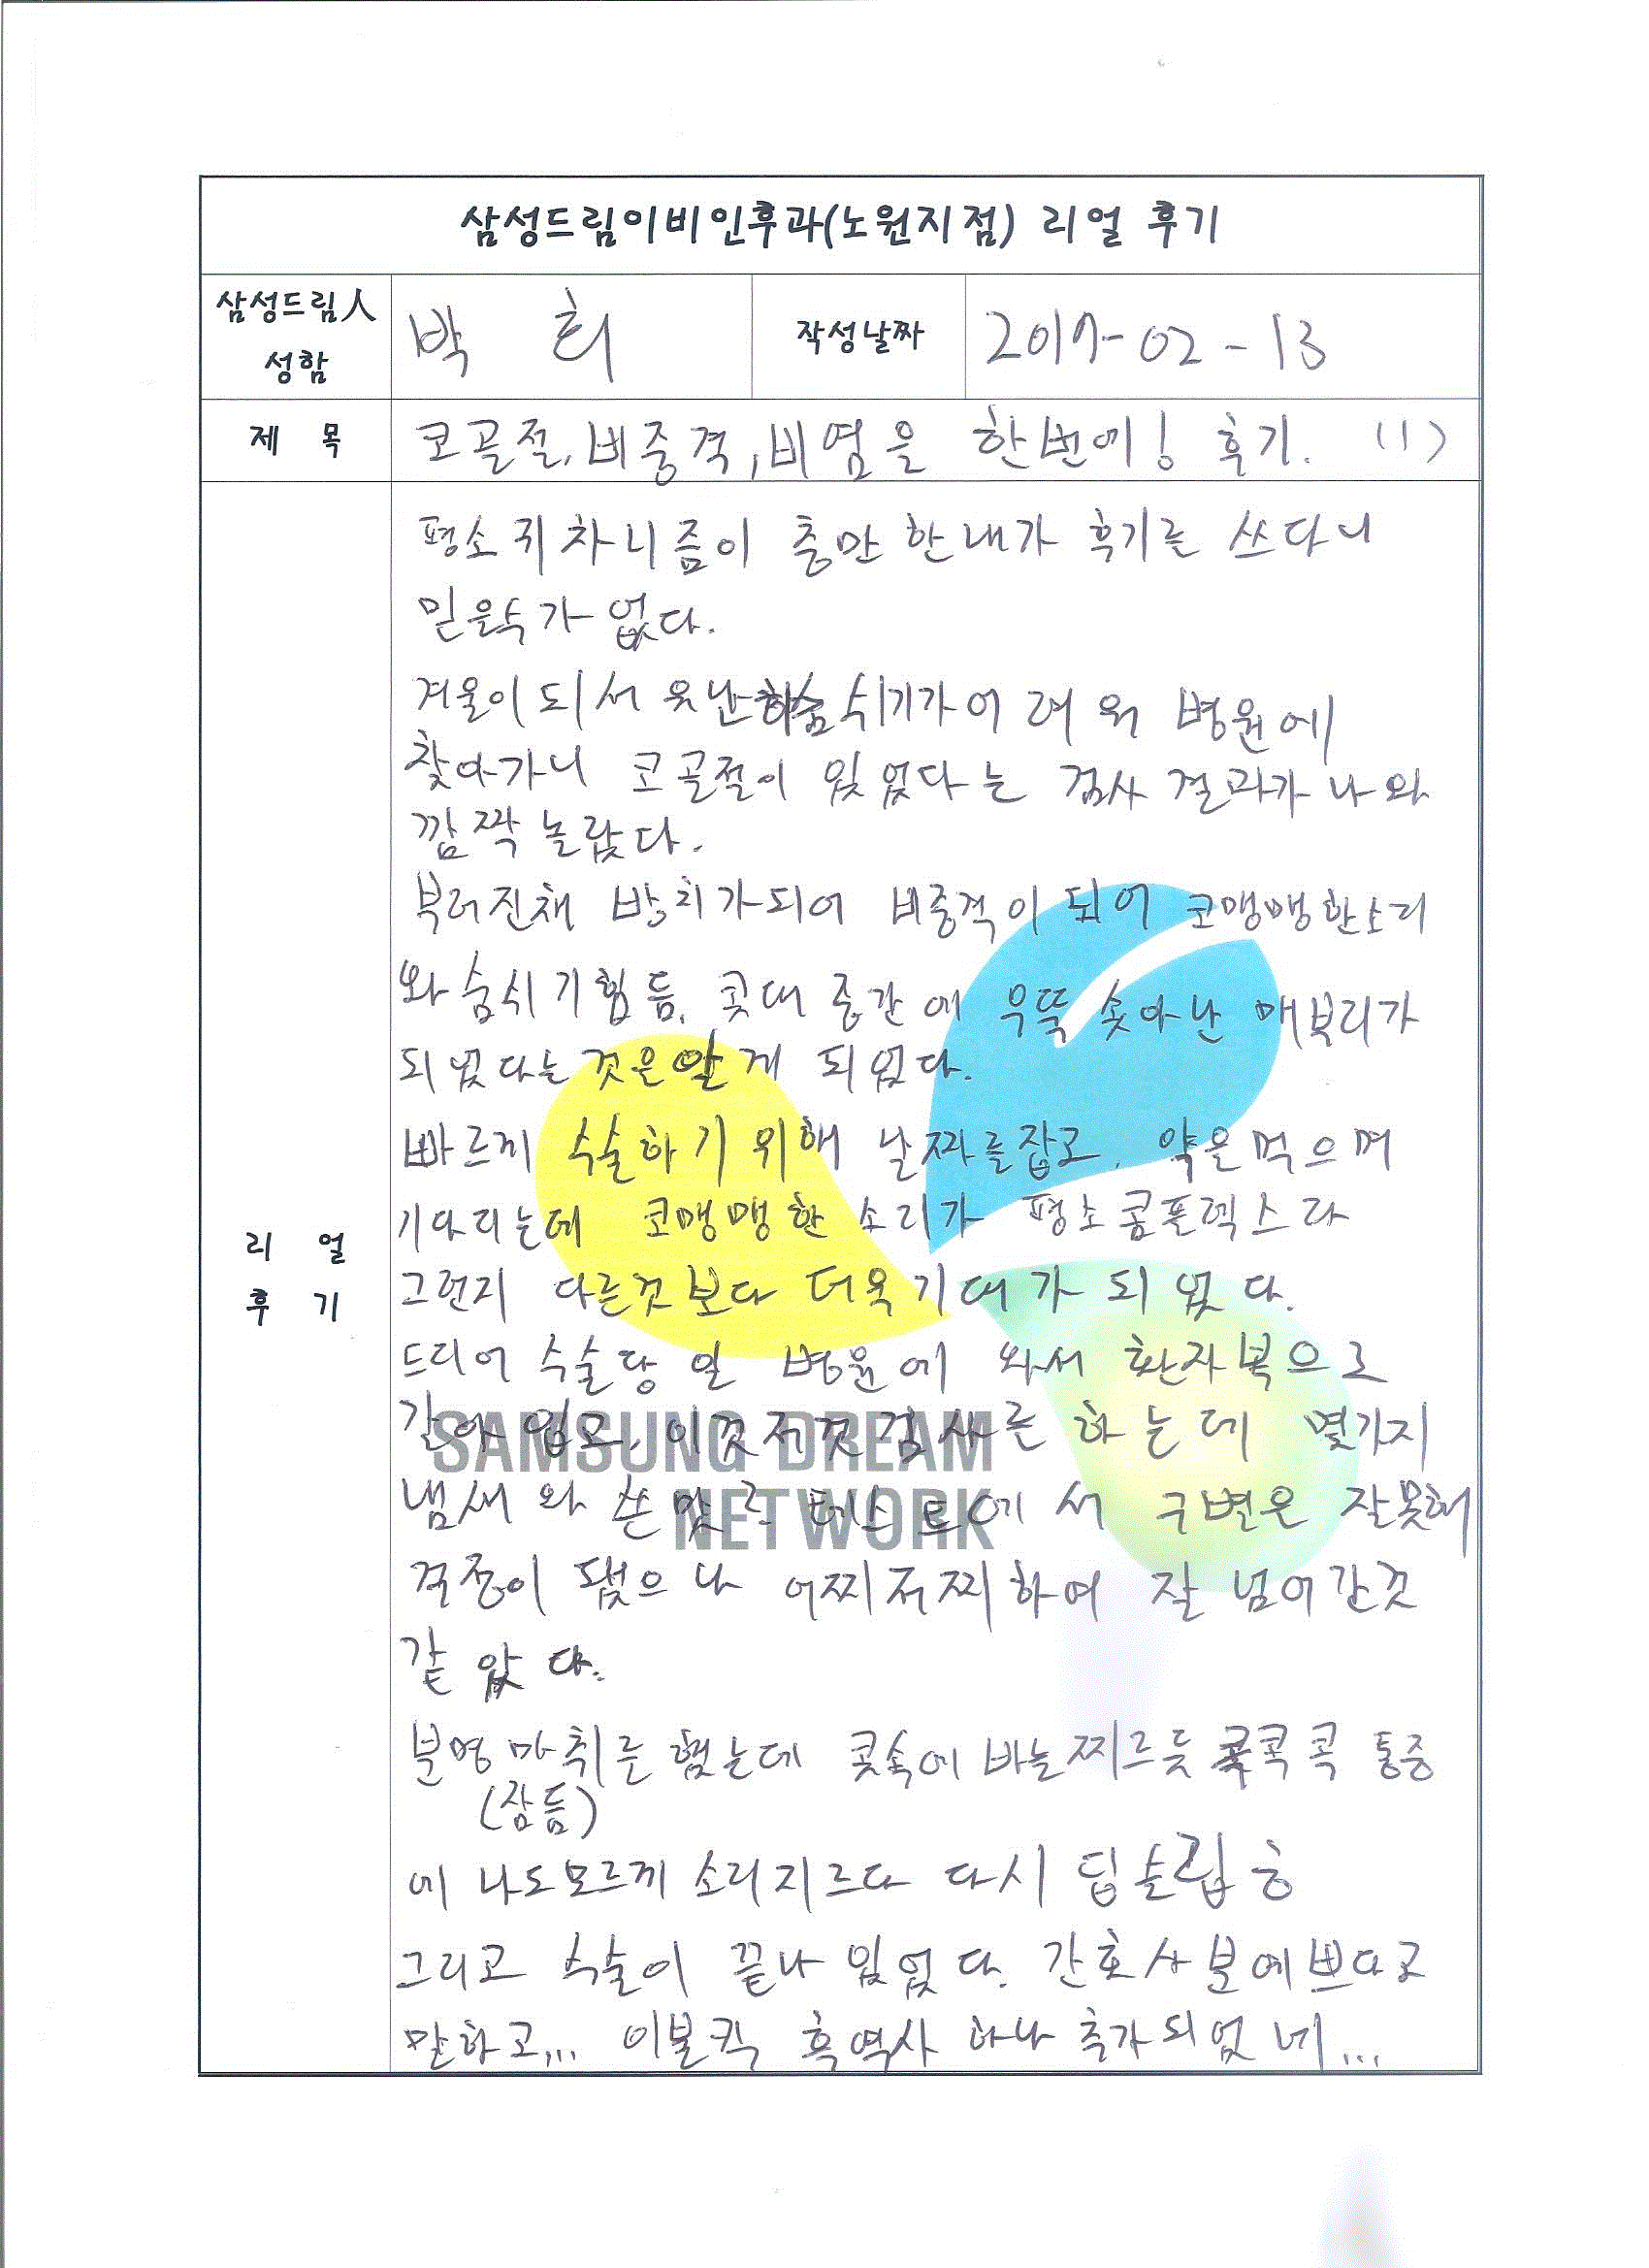 삼성드림이비인후과(노원지점) 리얼 후기
삼성드림人
성함
박 희
작성날짜
2017-02-13
제 목
코골절, 비중격, 비염을 한번에! 후기. (1)
평소 귀차니즘이 충만 한내가 후기를 쓰다니
믿을수가 없다.
겨울이 되서 유난히숨쉬기가어 려워 병원에
찾아가니 코골절이 있었다는 검사 결과가 나와
깜짝 놀랐다.
부러진채 방치가되어 비중격이 되어 코맹맹한소리
와 숨쉬기힘듬, 콧대 중간에 우뚝 솟아난 매부리가
되었다는것을알게 되었다.
빠르게 수술하기 위해 날짜를잡고, 약을먹으며
기다리는데 코맹맹한 소리가 평소콤플렉스라
그런지 다른것보다 더욱기대가 되었다.
드디어 수술당일 병원에 와서 환자복으로
갈아입고, 이것저것검사를 하는데 몇가지
냄새와 쓴맛은 테스트에서 구별은 잘못해
걱정이 됐으나 어찌저찌하여 잘넘어간것
같았다.
분명마취를했는데 콧속에바늘찌르듯 콕콕 통증
(잠듬)
에 나도모르게 소리지르다 다시 딥슬립 흥
그리고 수술이 끝나있었다. 간호사분예쁘다고
말하고... 이불킥 흑역사 하나 추가되었네...
리 얼
후 기
SAMSUNG DREAM
NETWORK